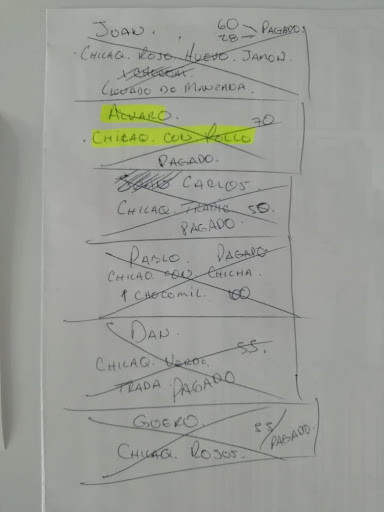 JUAN. 60 PAGADO.
28
CHILAQ. ROJO HUEVO. JAMON.
LICUADO DE MANZANA.
ALVARO. 70
CHILAQ. CON POLLO
PAGADO.
CARLOS.
CHILAQ. TRADIC 50.
PAGADO.
PABLO. PAGADO
CHILAQ CON CHICHA
1 CHOCOMIL. 100
DAN. 55.
CHILAQ. VERDE.
TRADA. PAGADO
GUERO. 55/
PAGADO.
CHILAQ. ROJOS.